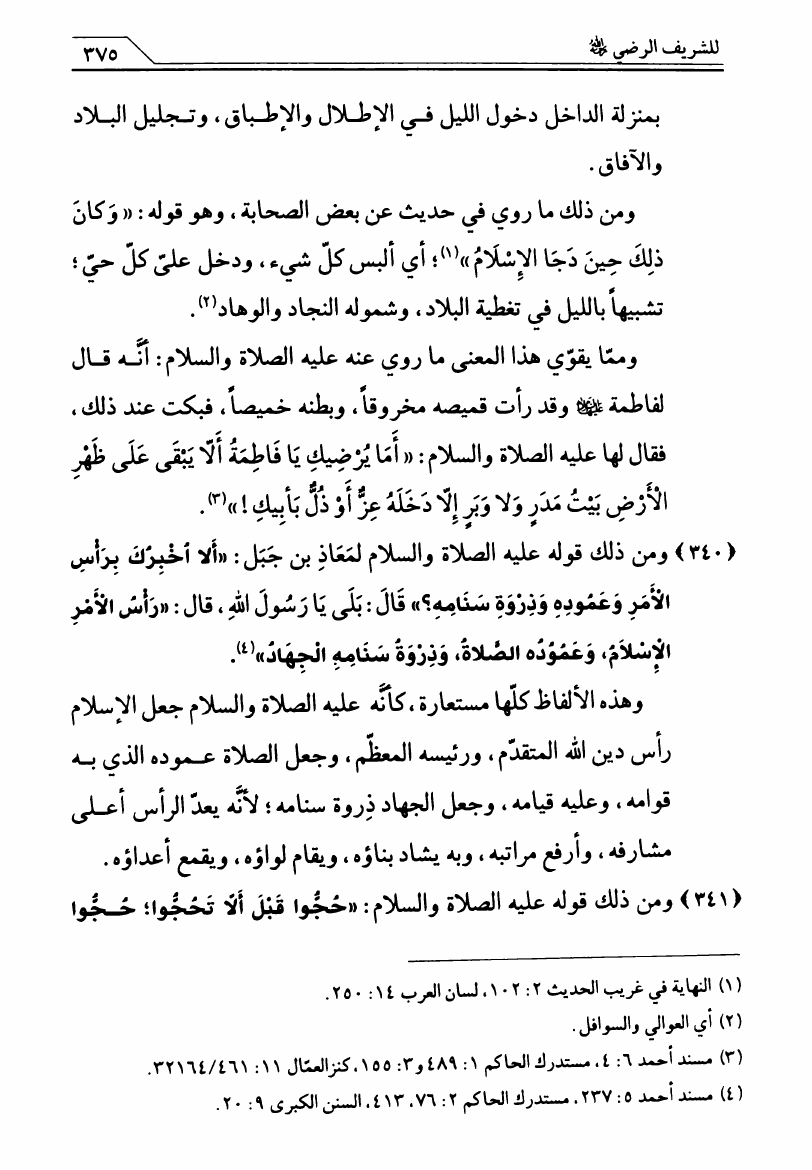 للشريف الرضي ﷺ
٣٧٥
بمنزلة الداخل دخول الليل في الإطلال والإطباق، وتجليل البلاد
والآفاق.
ومن ذلك ما روي في حديث عن بعض الصحابة، وهو قوله: «وَكانَ
ذلِكَ حِينَ دَجَا الإِسْلَامُ»(١)؛ أي ألبس كلّ شيء، ودخل علىّ كلّ حيّ؛
تشبيهاً بالليل في تغطية البلاد، وشموله النجاد والوهاد(٢).
وممّا يقوّي هذا المعنى ما روي عنه عليه الصلاة والسلام: أنَّه قال
لفاطمة وقد رأت قميصه مخروقاً، وبطنه خميصاً، فبكت عند ذلك،
فقال لها عليه الصلاة والسلام: «أَمَا يُرْضِيكِ يَا فَاطِمَةُ أَلّا يَبْقَى عَلَى ظَهْرِ
الْأَرْضِ بَيْتُ مَدَرٍ وَلا وَبَرٍ إِلّا دَخَلَهُ عِزٌّ أَوْ ذُلٌّ بَأَبِيكِ!»(٣).
(٣٤٠) ومن ذلك قوله عليه الصلاة والسلام لمَعَاذِ بن جَبَل: «أَلا اُخْبِرُكَ بِرَأْسِ
الْأَمَرِ وَعَمُودِهِ وَذِرْوَةِ سَنَامِهِ؟» قَالَ: بَلَى يَا رَسُولَ اللهِ، قال: «رَأْسُ الْأَمْرِ
الْإِسْلاَمُ، وَعَمُوْدُه الصَّلاةُ، وَذِرْوَةُ سَنَامِهِ الْجِهَادُ»(٤).
وهذه الألفاظ كلّها مستعارة، كأنَّه عليه الصلاة والسلام جعل الإسلام
رأس دين الله المتقدّم، ورئيسه المعظّم، وجعل الصلاة عموده الذي به
قوامه، وعليه قيامه، وجعل الجهاد ذِروة سنامه؛ لأنَّه يعدّ الرأس أعلى
مشارفه، وأرفع مراتبه، وبه يشاد بناؤه، ويقام لواؤه، ويقمع أعداؤه.
(٣٤١) ومن ذلك قوله عليه الصلاة والسلام: «حُجُّوا قَبْلَ أَلّا تَحُجُّوا؛ حُجُّوا
(١) النهاية في غريب الحديث ٢: ١٠٢، لسان العرب ١٤: ٢٥٠.
(٢) أي العوالي والسوافل.
(٣) مسند أحمد ٦: ٤، مستدرك الحاكم ١: ٤٨٩ و٣: ١٥٥، كنز العمّال ١١: ٤٦١/٣٢١٦٤.
(٤) مسند أحمد ٥: ٢٣٧، مستدرك الحاكم ٢: ٧٦، ٤١٣، السنن الكبرى ٩: ٢٠.